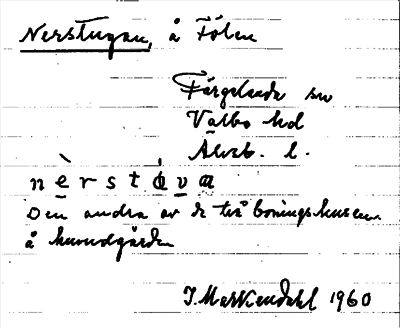 Nerstugan, å Fölen
Färgelanda sn
Valbo hd
Älvsb. l.
Den andra av de två boningshusen
å huvudgården
J. Markendahl 1960